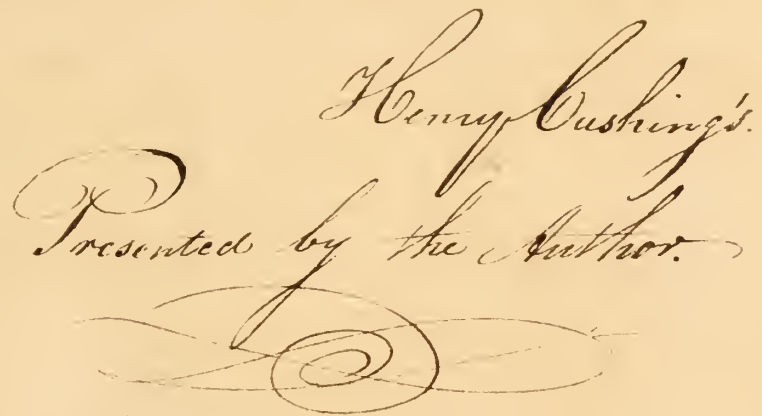 Henry Cushing's.
Presented by the Author.